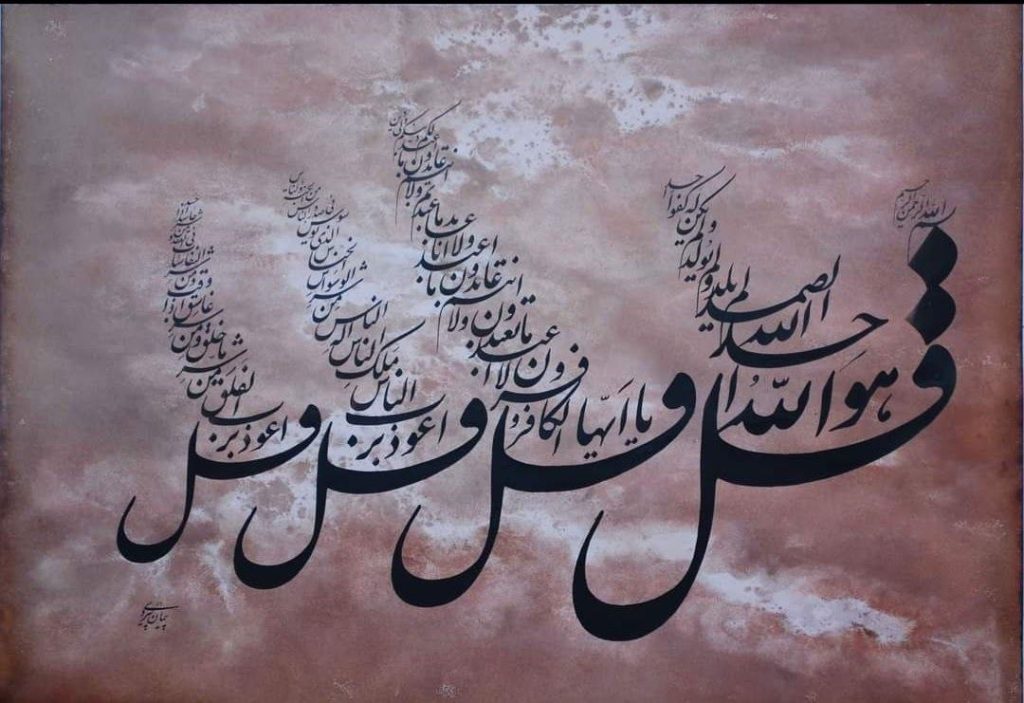 بسم الله الرحمن الرحیم
قل هوَ اللهُ احد الله الصمد لم یلد ولم یولد ولم یکن له کفوا احد
قل یا ایها الکافرون لا اعبد ما تعبدون ولا انتم عابدون ما اعبد ولا انا عابد ما عبدتم ولا انتم عابدون ما اعبد لکم دینکم ولی دین
قل اعوذ برب الناس ملک الناس اله الناس من شر الوسواس الخناس الذی یوسوس فی صدور الناس من الجنة والناس
قل اعوذ برب الفلق من شر ما خلق ومن شر غاسق اذا وقب ومن شر النفاثات فی العقد ومن شر حاسد اذا حسد